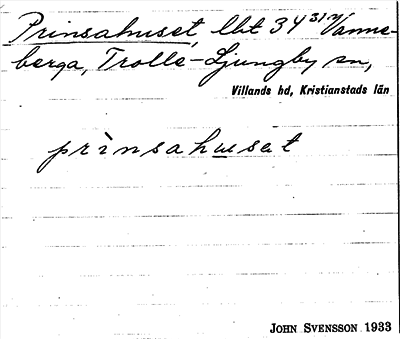 Prinsahuset, lht 34³¹ Vanne-
berga, Trolle-Ljungby sn,
Villands hd, Kristianstads län
prìnsahuset
JOHN SVENSSON 1933